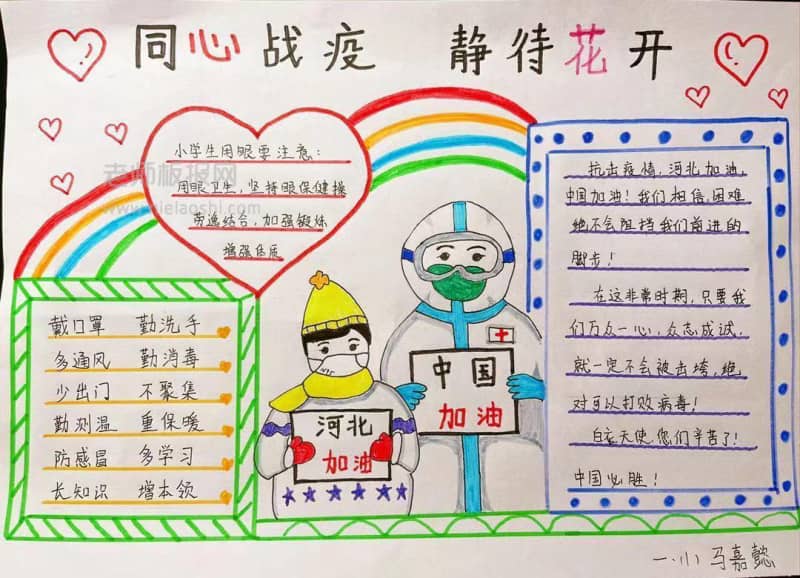 同心战疫 静待花开
小学生用眼要注意：
用眼卫生，坚持眼保健操
劳逸结合，加强锻炼
增强体质
老师板报网
www.mielaoshi.com
戴口罩 勤洗手
多通风 勤消毒
少出门 不聚集
勤测温 重保暖
防感冒 多学习
长知识 增本领
河北
加油
中国
加油
抗击疫情，河北加油，
中国加油！我们相信，困难
绝不会阻挡我们前进的
脚步！
在这非常时期，只要我
们万众一心，众志成诚，
就一定不会被击垮，绝
对可以打败病毒！
白衣天使，您们辛苦了！
中国必胜！
一．小 马嘉懿